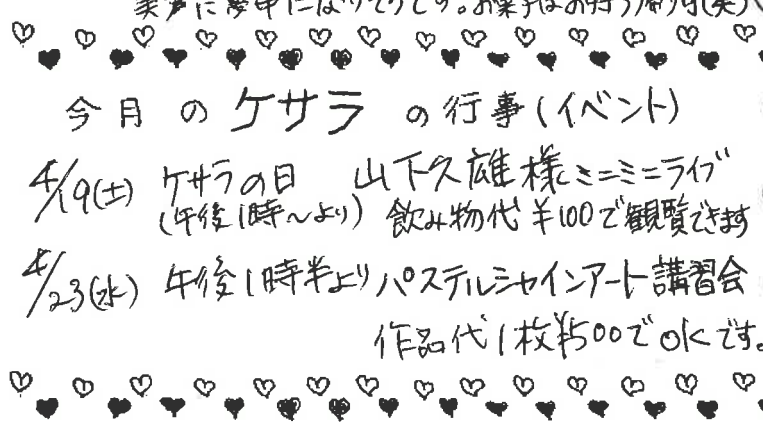 美声に夢中になりそうです。お菓子はお持ち帰り可(笑)
今月のケサラの行事(イベント)
4/19(土) ケサラの日 山下久雄様ミニミニライブ
(午後1時〜より) 飲み物代¥100で観覧できます
4/23(水) 午後1時半よりパステルシャインアート講習会
作品代1枚¥500でOKです。